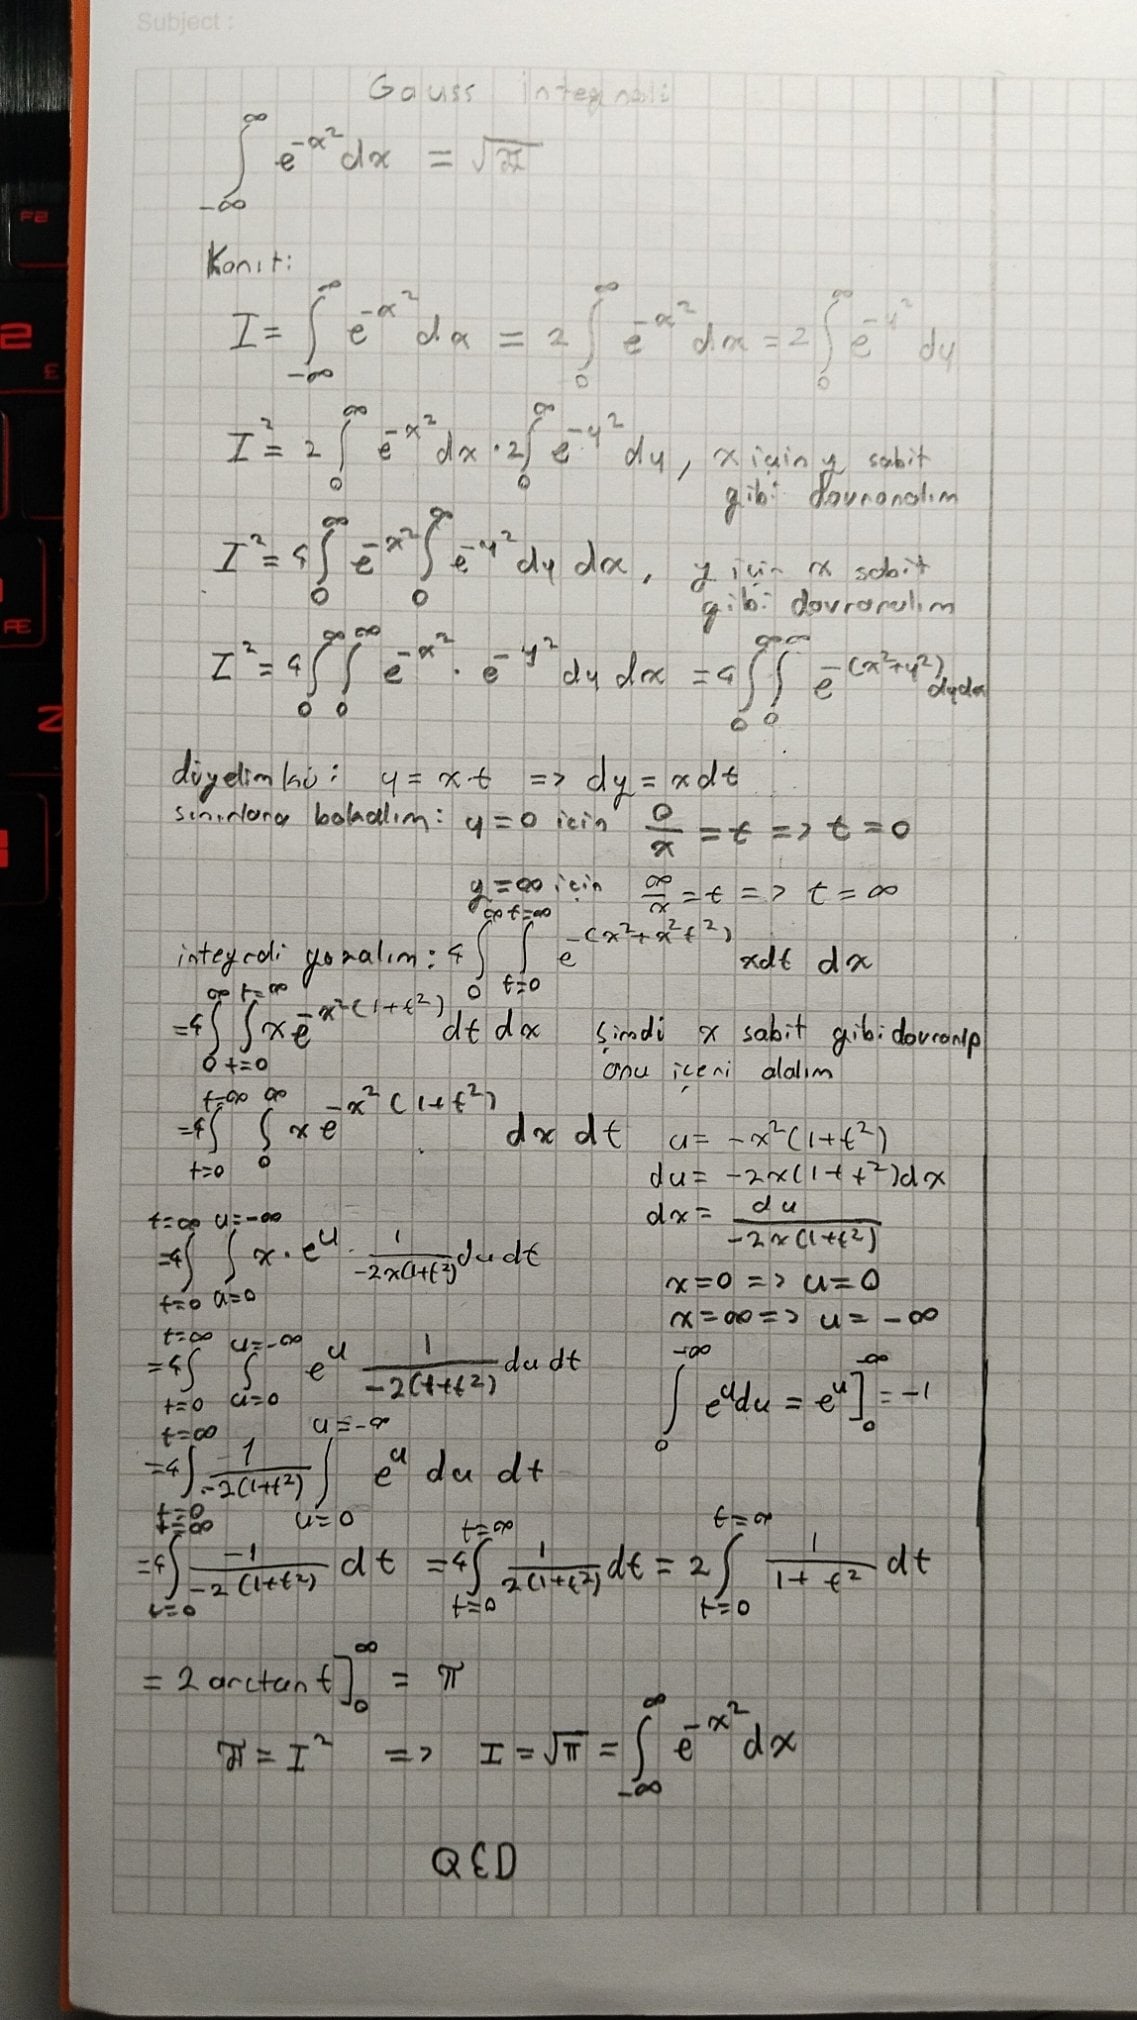 Subject :
Gauss integrali
∫_{-∞}^{∞} e^{-x²} dx = √π
Kanıt:
I = ∫_{-∞}^{∞} e^{-x²} dx = 2∫_0^∞ e^{-x²} dx = 2∫_0^∞ e^{-y²} dy
I² = 2∫_0^∞ e^{-x²} dx · 2∫_0^∞ e^{-y²} dy, x için y sabit
gibi davranalım
I² = 4∫_0^∞ e^{-x²} ∫_0^∞ e^{-y²} dy dx, y için x sabit
gibi davranalım
I² = 4∫_0^∞ ∫_0^∞ e^{-x²} · e^{-y²} dy dx = 4∫_0^∞ ∫_0^∞ e^{-(x²+y²)} dydx
diyelim ki: y = xt => dy = xdt
sınırlara bakalım: y=0 için 0/x = t => t = 0
y=∞ için ∞/x = t => t = ∞
integrali yazalım: 4∫_0^∞ ∫_{t=0}^{t=∞} e^{-(x²+x²t²)} xdt dx
=4∫_0^∞ ∫_{t=0}^{t=∞} x e^{-x²(1+t²)} dt dx Şimdi x sabit gibi davranıp
onu içeri alalım
=4∫_{t=0}^{t=∞} ∫_0^∞ x e^{-x²(1+t²)} dx dt u = -x²(1+t²)
du = -2x(1+t²)dx
dx = du/(-2x(1+t²))
=4∫_{t=0}^{t=∞} ∫_{u=0}^{u=-∞} x·e^u · 1/(-2x(1+t²)) du dt
x=0 => u=0
x=∞ => u=-∞
=4∫_{t=0}^{t=∞} ∫_{u=0}^{u=-∞} e^u 1/(-2(1+t²)) du dt
∫_0^{-∞} e^u du = e^u]_0^{-∞} = -1
=4∫_{t=0}^{t=∞} 1/(-2(1+t²)) ∫_{u=0}^{u=-∞} e^u du dt
=4∫_{t=0}^{t=∞} -1/(-2(1+t²)) dt = 4∫_{t=0}^{t=∞} 1/(2(1+t²)) dt = 2∫_{t=0}^{t=∞} 1/(1+t²) dt
= 2 arctan t]_0^∞ = π
π = I² => I = √π = ∫_{-∞}^{∞} e^{-x²} dx
QED
F2
2
E
Æ
Z